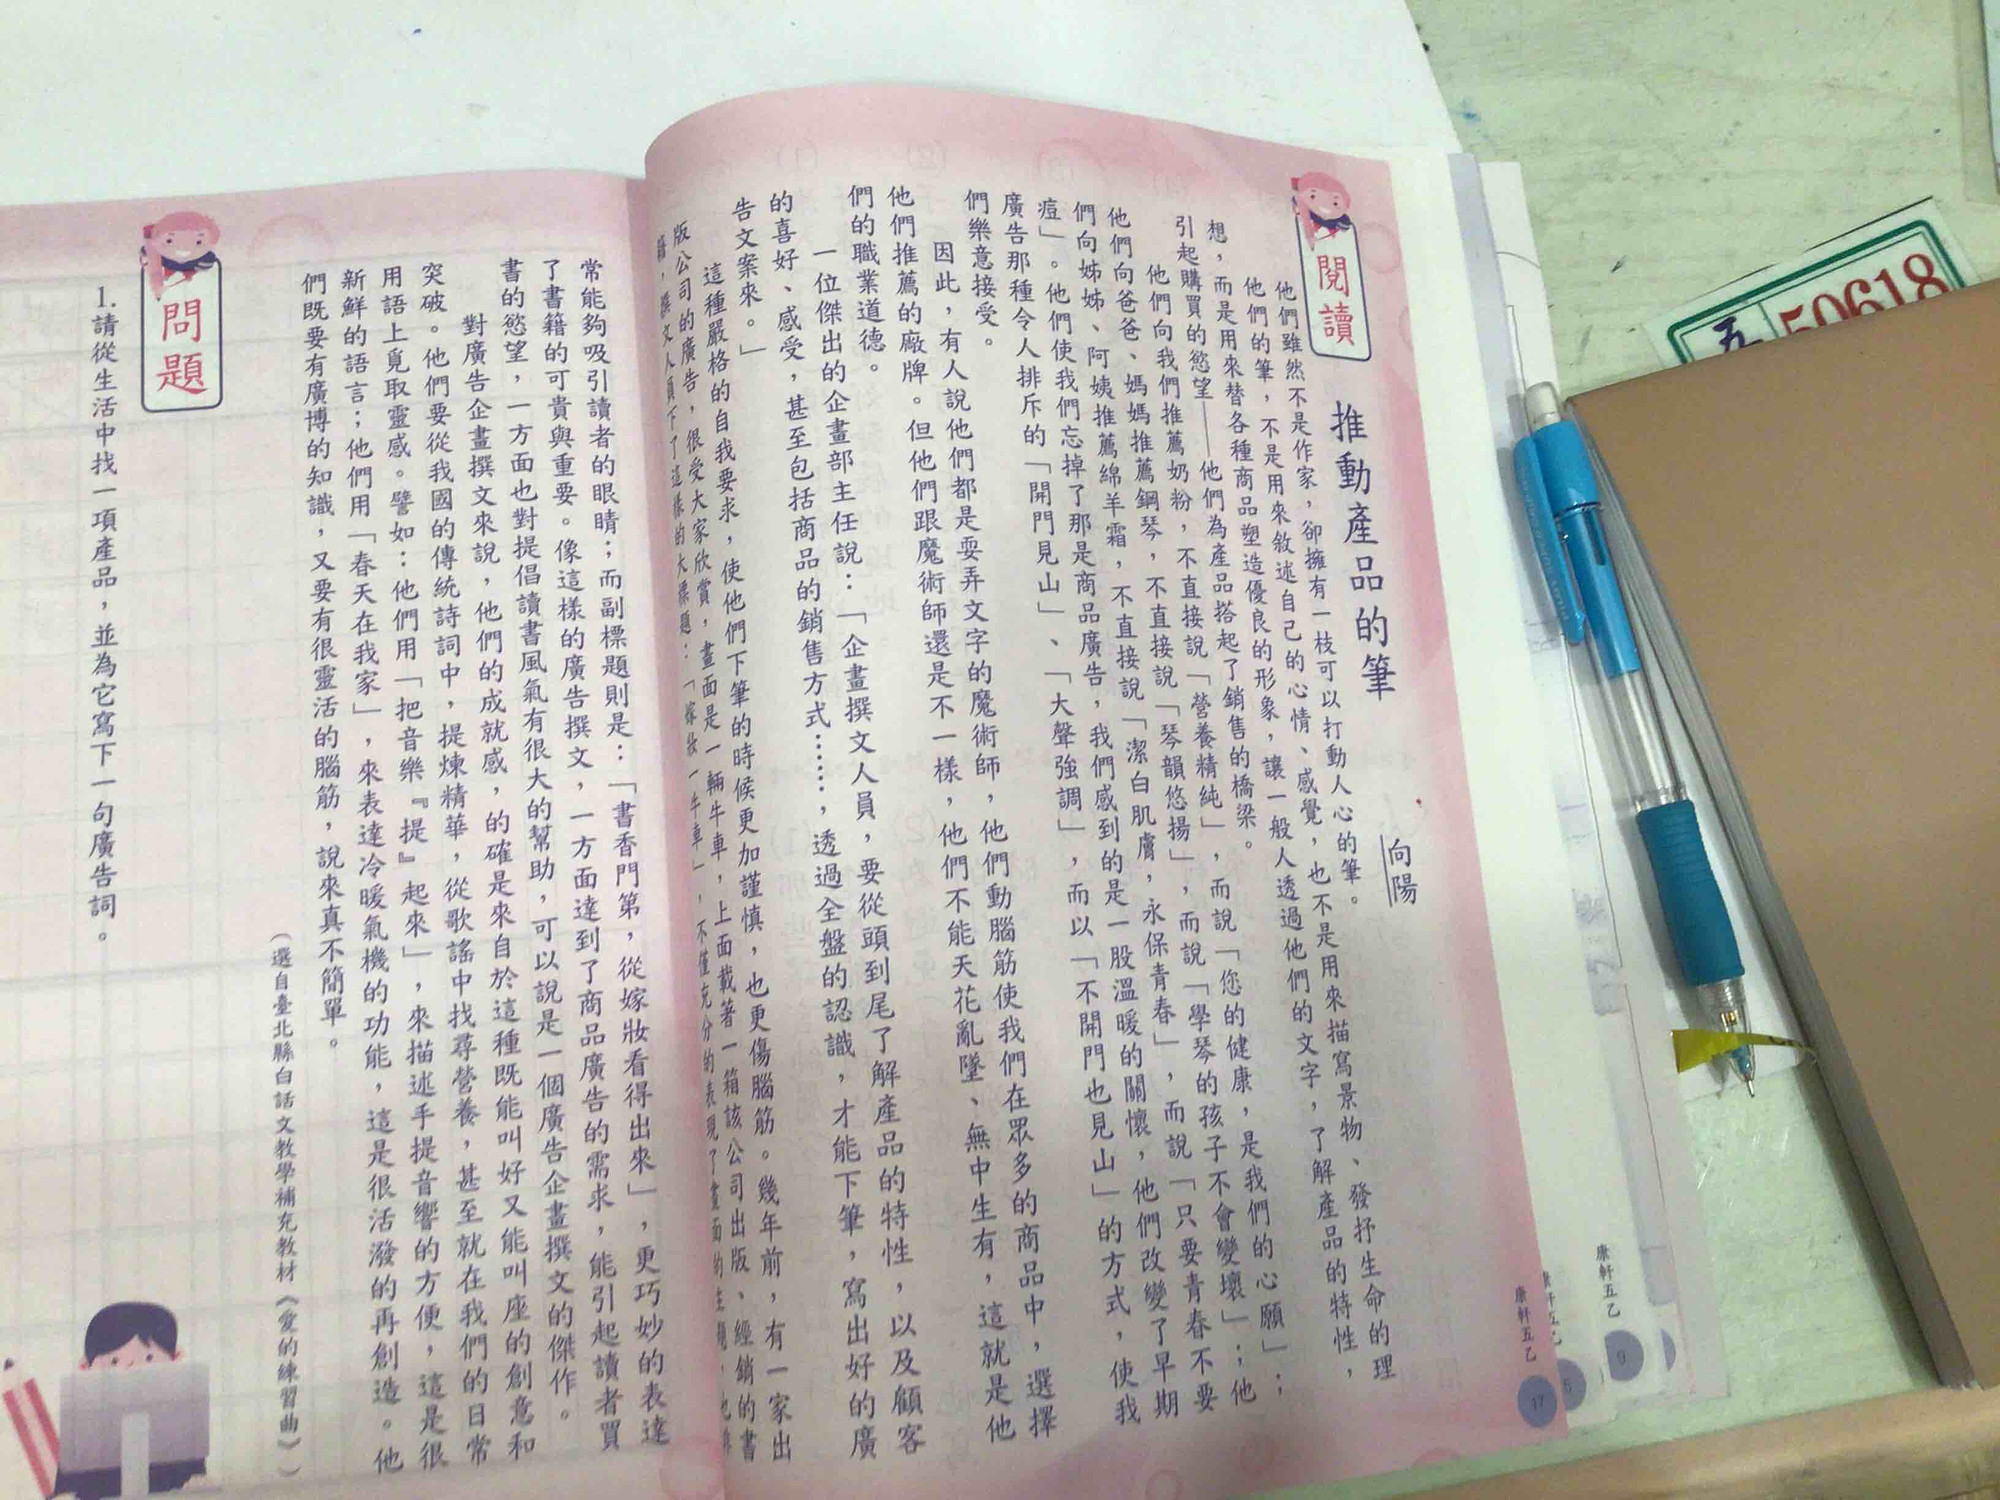 閱讀
推動產品的筆
向陽
他們雖然不是作家，卻擁有一枝可以打動人心的筆。
他們的筆，不是用來敘述自己的心情、感覺，也不是用來描寫景物、發抒生命的理
想，而是用來替各種商品塑造優良的形象，讓一般人透過他們的文字，了解產品的特性，
引起購買的慾望——他們為產品搭起了銷售的橋梁。
他們向我們推薦奶粉，不直接說「營養精純」，而說「您的健康，是我們的心願」；
他們向爸爸、媽媽推薦鋼琴，不直接說「琴韻悠揚」，而說「學琴的孩子不會變壞」；他
們向姊姊、阿姨推薦綿羊霜，不直接說「潔白肌膚，永保青春」，而說「只要青春不要
痘」。他們使我們忘掉了那是商品廣告，我們感到的是一股溫暖的關懷，他們改變了早期
廣告那種令人排斥的「開門見山」、「大聲強調」，而以「不開門也見山」的方式，使我
們樂意接受。
因此，有人說他們都是耍弄文字的魔術師，他們動腦筋使我們在眾多的商品中，選擇
他們推薦的廠牌。但他們跟魔術師還是不一樣，他們不能天花亂墜、無中生有，這就是他
們的職業道德。
一位傑出的企畫部主任說：「企畫撰文人員，要從頭到尾了解產品的特性，以及顧客
的喜好、感受，甚至包括商品的銷售方式……，透過全盤的認識，才能下筆，寫出好的廣
告文案來。」
這種嚴格的自我要求，使他們下筆的時候更加謹慎，也更傷腦筋。幾年前，有一家出
版公司的廣告，很受大家欣賞，畫面是一輛牛車，上面載著一箱該公司出版、經銷的書
籍，撰文人員下了這樣的大標題：「嫁妝一牛車」，不僅充分的表現了畫面的主題，也非
常能夠吸引讀者的眼睛；而副標題則是：「書香門第，從嫁妝看得出來」，更巧妙的表達
了書籍的可貴與重要。像這樣的廣告撰文，一方面達到了商品廣告的需求，能引起讀者買
書的慾望，一方面也對提倡讀書風氣有很大的幫助，可以說是一個廣告企畫撰文的傑作。
對廣告企畫撰文來說，他們的成就感，的確是來自於這種既能叫好又能叫座的創意和
突破。他們要從我國的傳統詩詞中，提煉精華，從歌謠中找尋營養，甚至就在我們的日常
用語上覓取靈感。譬如：他們用「把音樂『提』起來」，來描述手提音響的方便，這是很
新鮮的語言；他們用「春天在我家」，來表達冷暖氣機的功能，這是很活潑的再創造。他
們既要有廣博的知識，又要有很靈活的腦筋，說來真不簡單。
（選自臺北縣白話文教學補充教材《愛的練習曲》）
問題
1.請從生活中找一項產品，並為它寫下一句廣告詞。
康軒五乙
17
康軒五乙
9
50618
五